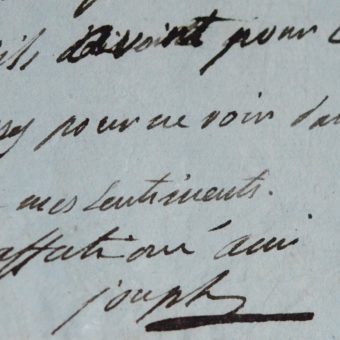 ils avoint pour
pour ne voir dan
mes sentiments.
affationé ami
joseph